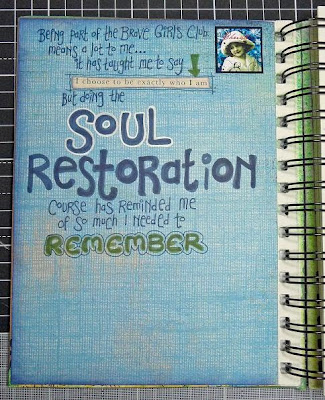 Being part of the Brave Girls Club
means a lot to me...
it has taught me to say
I choose to be exactly who I am
But doing the
SOUL
RESTORATION
Course has reminded me
of so much I needed to
REMEMBER